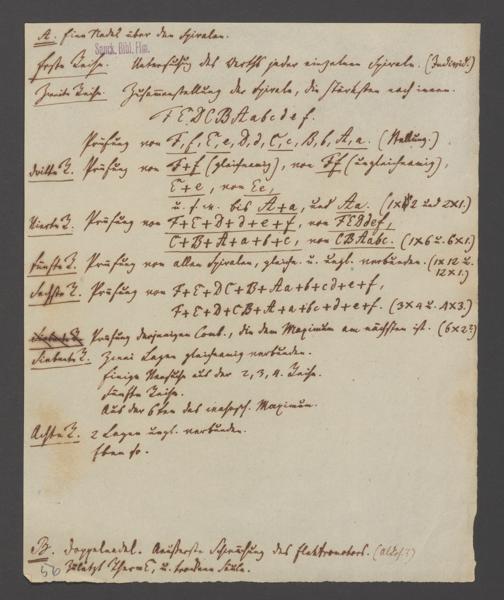 A. Eine Nadel über den Spiralen.
Senck. Bibl. Ffm.
Erste Reihe. Untersuchung des Werths jeder einzelnen Spirale. (Individ.)
Zweite Reihe. Zusammenstellung der Spirale, die stärksten nach innen.
F E D C B A a b c d e f.
Prüfung von F, f, E, e, D, d, C, c, B, b, A, a. (Stellung.)
Dritte R. Prüfung von F+f (gleichnamig), von Ff (ungleichnamig),
E+e, von Ee,
u. s. w. bis A+a, und Aa. (1x2 und 2x1.)
Vierte R. Prüfung von F+E+D+d+e+f, von FEDdef,
C+B+A+a+b+c, von CBAabc. (1x6 u. 6x1.)
Fünfte R. Prüfung von allen Spiralen, gleichn. u. ungl. verbunden. (1x12 u.
12x1.)
Sechste R. Prüfung von F+E+DC+B+Aa+b+cd+e+f,
F+E+D+CB+A+a+bc+d+e+f. (3x4 u. 4x3.)
Prüfung derjenigen Comb., die dem Maximum am nächsten ist. (6x2?)
Siebente R. Zwei Lagen gleichnamig verbunden.
Einige Versuche aus der 2, 3, 4. Reihe.
Fünfte Reihe.
Aus der 6ten das Maximum.
Achte R. 2 Lagen ungl. verbunden.
Eben so.
B. Doppelnadel. Äußerste Schwächung des Elektromotors.
56 Zuletzt Therm E, u. trockene Säule.